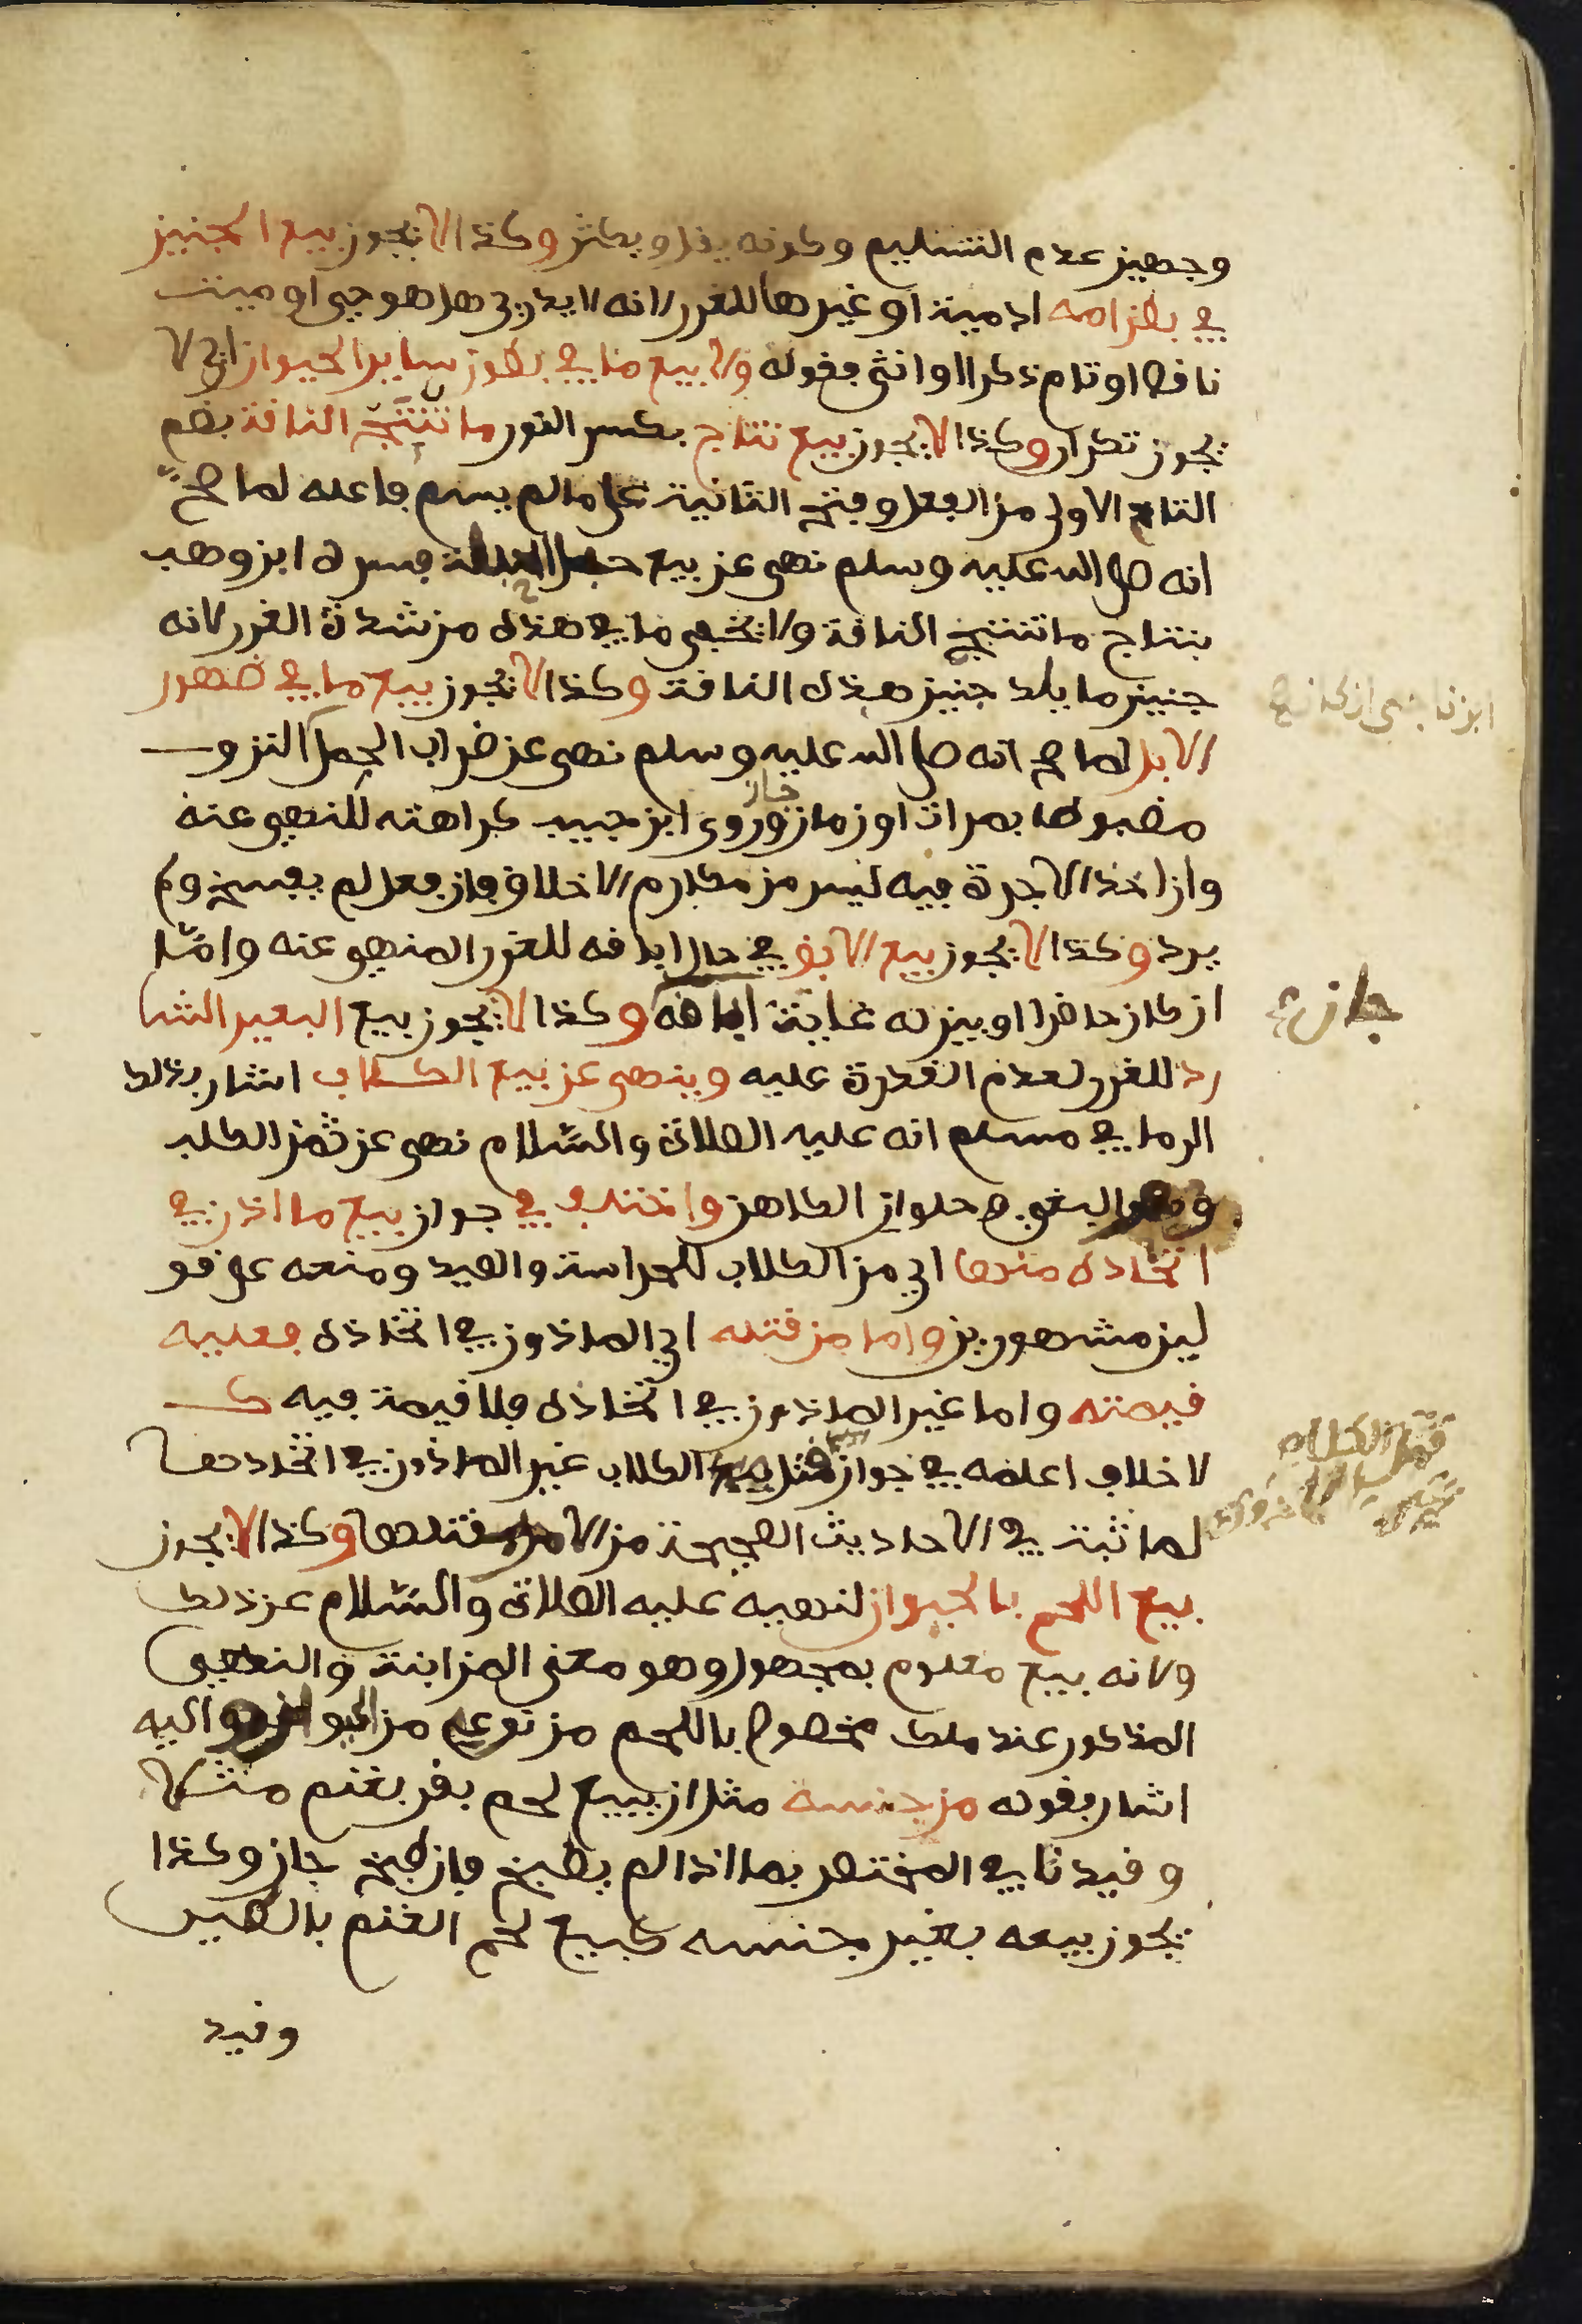 وجهين عدم التسليم وكونه يقل ويكثر وكذا لا يجوز بيع الجنين
في بطن امه ادمية او غيرها للغرر لانه لا يدرى هل هو حي او ميت
ناقص او تام ذكر او انثى فقوله ولا بيع ما في بطون ساير الحيوان اي لا
يجوز تكرار وكذا لا يجوز بيع نتاج بكسر النون ما تنتج الناقة بضم
التاء الاولى من الفعل وفتح الثانية على ما لم يسم فاعله لما صح
انه صلى الله عليه وسلم نهى عن بيع حبل الحبلة فسره ابن وهب
بنتاج ما تنتج الناقة ولا يخفى ما في هذه من شدة الغرر لانه
جنين ما يلد جنين هذه الناقة وكذا لا يجوز بيع ما في ضهور
الابل لما صح انه صلى الله عليه وسلم نهى عن ضراب الجمل النزو
مضبوطا بمرات او زمان جاز وروى ابن حبيب كراهته للنهي عنه
وان اخذ الاجرة فيه ليس من مكارم الاخلاق فان فعل لم يفسخ ولم
يرد وكذا لا يجوز بيع الابق في حال اباقه للغرر المنهي عنه واما
ان كان حاضرا وبين له غاية اباقه وكذا لا يجوز بيع البعير الشا
جاز
رد للغرر لعدم القدرة عليه وينهى عن بيع الكلاب اشار بذلك
الى ما في مسلم انه عليه الصلاة والسلام نهى عن ثمن الكلب
ومهر البغي وحلوان الكاهن واختلف في جواز بيع ما اذن في
اتخاذه منها اي من الكلاب للحراسة والصيد ومنعه على قو
لين مشهورين واما من قتله اي الماذون في اتخاذه فعليه
قيمته واما غير الماذون في اتخاذه فلا قيمة فيه ك
لا خلاف اعلمه في جواز قتل الكلاب غير الماذون في اتخاذها
قتل الكلاب
لما ثبت في الاحاديث الصحيحة من الامر بقتلها وكذا لا يجوز
بيع اللحم بالحيوان لنهيه عليه الصلاة والسلام عن ذلك
ولانه بيع معلوم بمجهول وهو معنى المزابنة والنهي
المذكور عند ملك مخصوص باللحم من نوعه من الحيوان واليه
اشار بقوله من جنسه مثل ان يبيع لحم بقر بغنم مثلا
وقيدنا في المختصر بما اذا لم يطبخ فان طبخ جاز وكذا
يجوز بيعه بغير جنسه كبيع لحم الغنم بالطير
وقيد